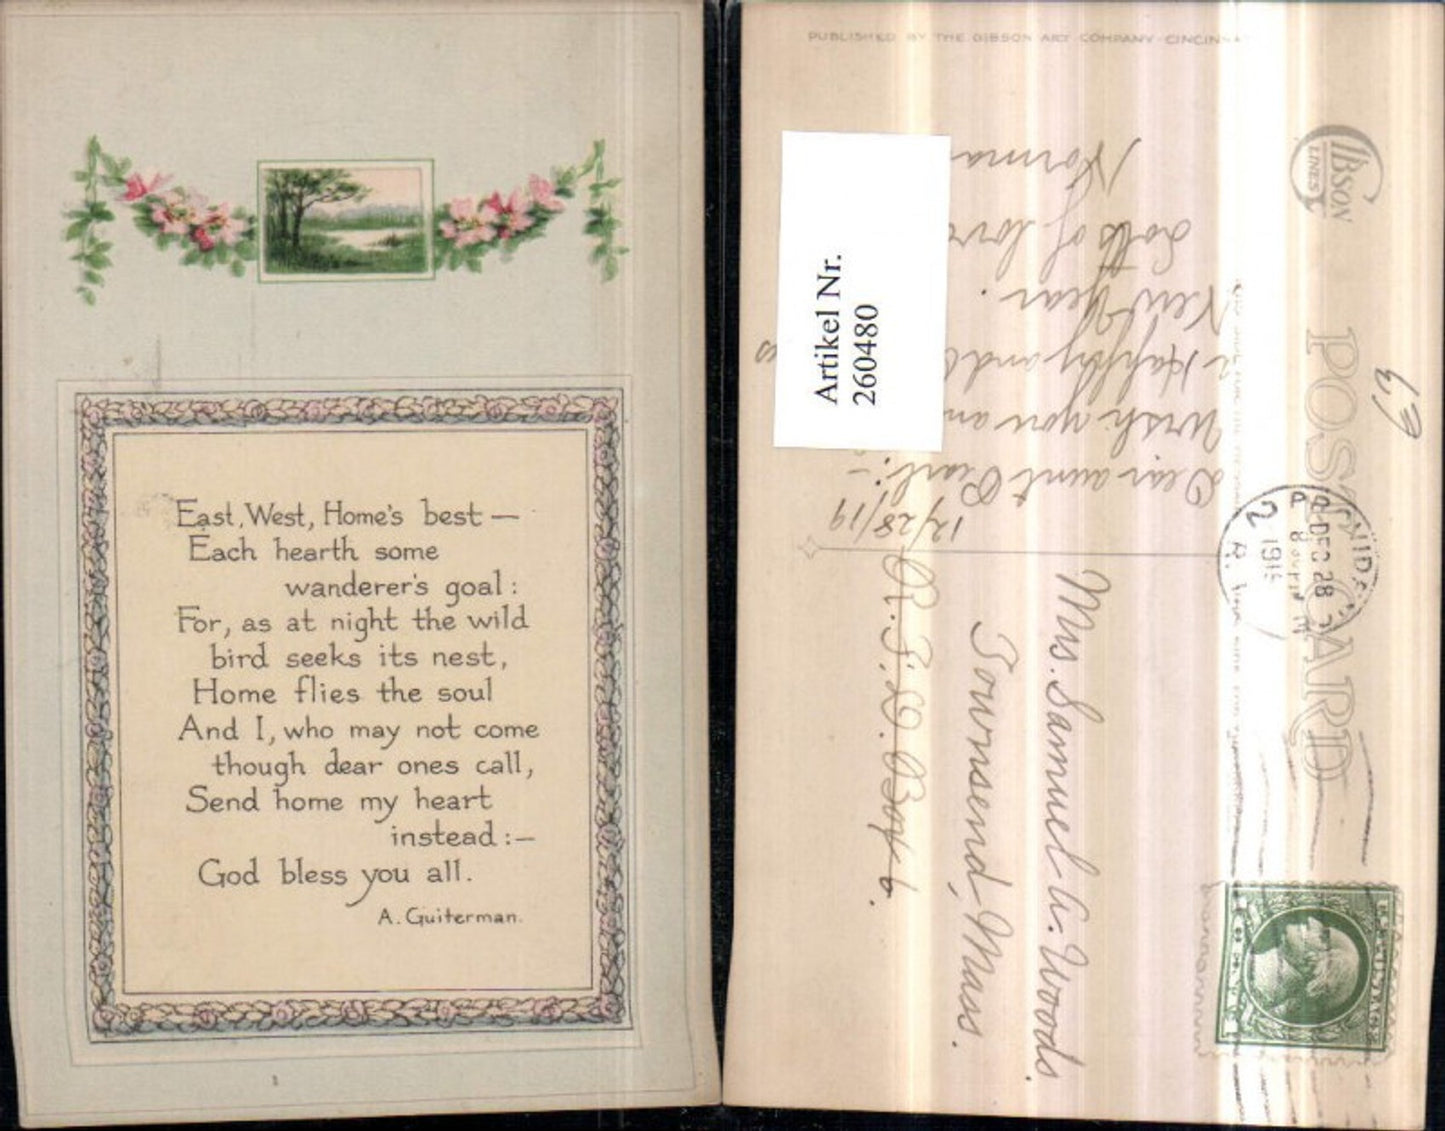 East, West, Home's best —
Each hearth some
wanderer's goal :
For, as at night the wild
bird seeks its nest,
Home flies the soul
And I, who may not come
though dear ones call,
Send home my heart
instead :—
God bless you all.
A. Guiterman.
1
PUBLISHED BY THE GIBSON ART COMPANY CINCINNAT
GIBSON
LINES
POST CARD
63
Artikel Nr.
260480
12/28/19
Dear aunt Pearl:-
Wish you
Happy and
New Year.
Lots of love
Norma
DEC 28
8 30 PM
R. I.
Mrs. Samuel A. Woods.
Townsend, Mass.
R. F. D. Box 6.